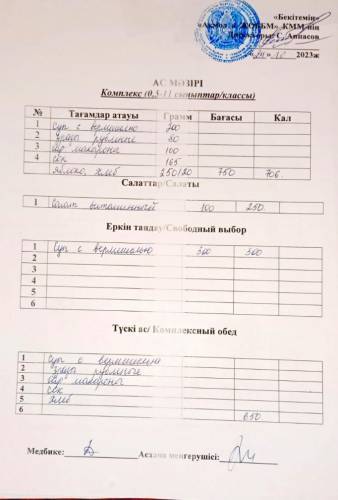 «Бекітемін»
КММ-нің
Директоры: С. Аппасов
2023ж
АС МӘЗІРІ
Комплекс (0,5-11 сыныптар/классы)
№ Тағамдар атауы Грамм Бағасы Кал
1 Суп с вермишелью 200
2 80
3 макароны 100
4 сок 165
хлеб 250/20 750 706
Салаттар/Салаты
1 Салат витаминный 100 250
Еркін таңдау/Свободный выбор
1 Суп с вермишелью 300 300
2
3
4
5
6
Түскі ас/ Комплексный обед
1 Суп с вермишелью
2
3 макароны
4 сок
5 хлеб
6 650
Медбике: Асхана меңгерушісі: